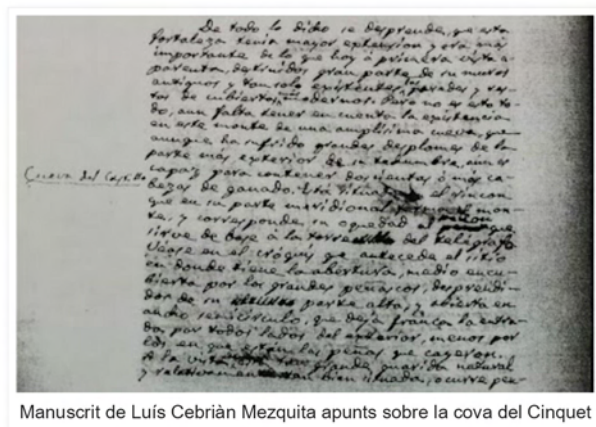 De todo lo dicho se desprende, que esta
fortaleza tenia mayor extension y era más
importante de lo que hoy á primera vista a-
parenta, destruidos gran parte de sus muros
antiguos y tan solo existentes las paredes y res-
tos de cubiertos modernos. Pero no es esto to-
do, aun falta tener en cuenta la existencia
en este monte de una amplísima cueva, que
aunque ha sufrido grandes desplomes de la
parte más exterior de su techumbre, aun es
Cueva del Castillo
capaz para contener doscientas ó más ca-
bezas de ganado. Está situada en el rincon
que en su parte meridional forma el mon-
te, y corresponde su oquedad al peñon que
sirve de base á la torre del telégrafo
Véase en el cróquis que antecede el sitio
en donde tiene la abertura, medio encu-
bierta por los grandes peñascos, desprendi-
dos de su parte alta, y abierta en
ancho semicírculo, que deja franca la entra-
da por todos lados del exterior, menos por
los en que están las peñas que cayeron.
A la vista de tan grande guarida natural
y relativamente tan bien situada, ocurre pen-
Manuscrit de Luís Cebriàn Mezquita apunts sobre la cova del Cinquet